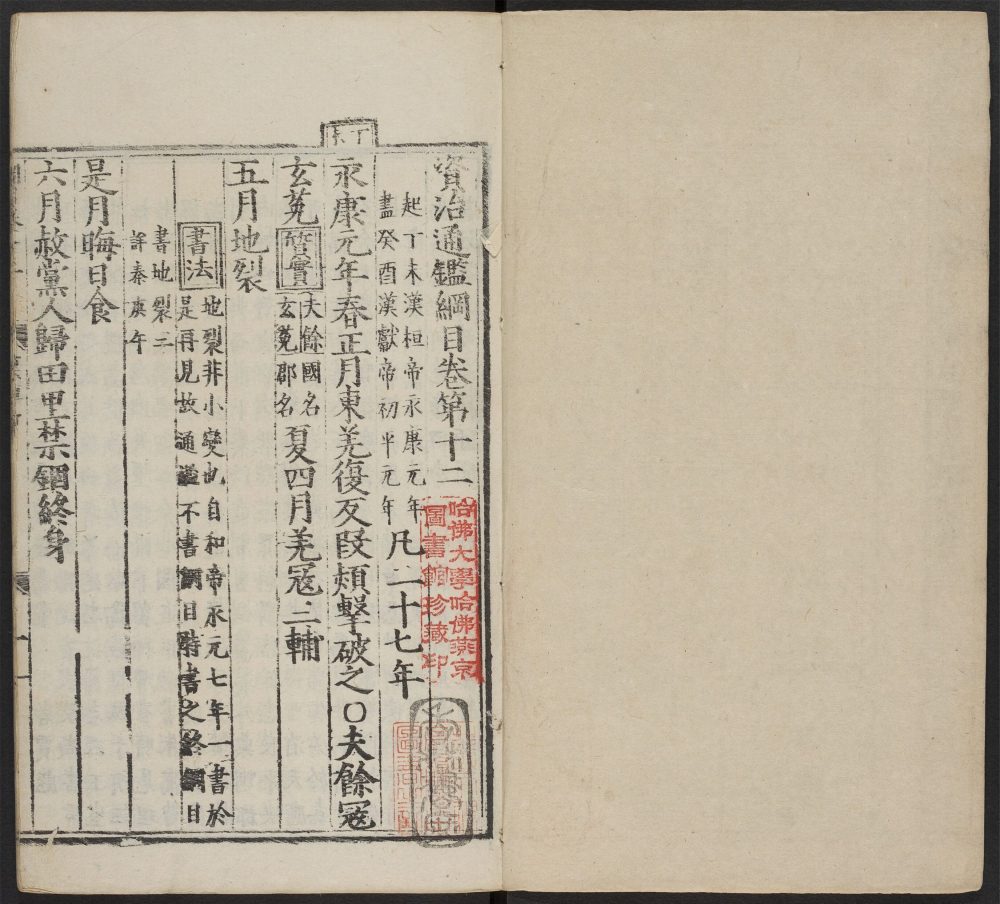 丁未
資治通鑑綱目卷第十二
起丁未漢桓帝永康元年
盡癸酉漢獻帝初平元年
凡二十七年
永康元年春正月東羌復反段熲擊破之○夫餘寇
玄菟
質實
夫餘國名
玄菟郡名
夏四月羌寇三輔
五月地裂
書法
地裂非小變也自和帝永元七年一書於
是再見故通鑑不書綱目特書之終綱目
書地裂二
詳秦庚午
是月晦日食
六月赦黨人歸田里禁錮終身
哈佛大學哈佛燕京
圖書館珍藏印